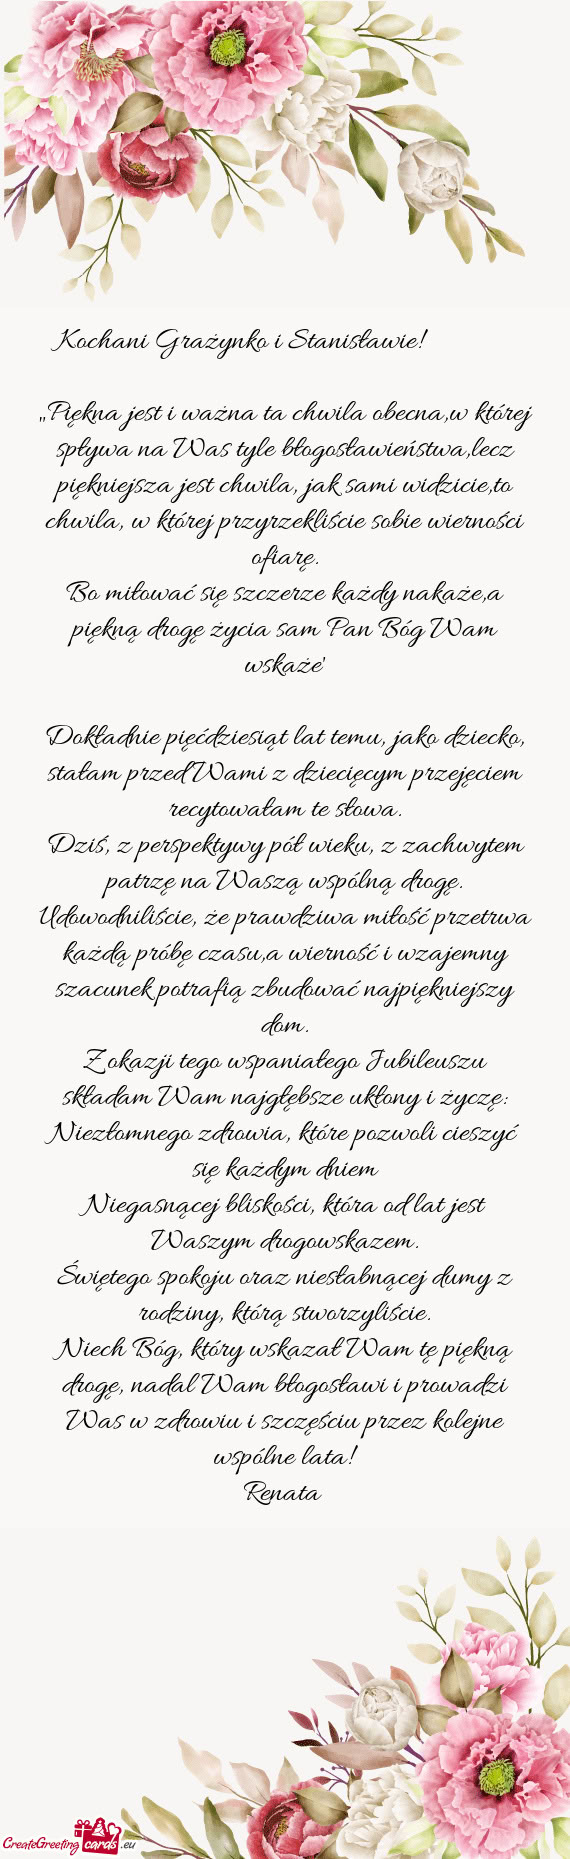 Kochani Grażynko i Stanisławie!
„Piękna jest i ważna ta chwila obecna,w której
spływa na Was tyle błogosławieństwa,lecz
piękniejsza jest chwila, jak sami widzicie,to
chwila, w której przyrzekliście sobie wierności
ofiarę.
Bo miłować się szczerze każdy nakaże,a
piękną drogę życia sam Pan Bóg Wam
wskaże'
Dokładnie pięćdziesiąt lat temu, jako dziecko,
stałam przed Wami z dziecięcym przejęciem
recytowałam te słowa.
Dziś, z perspektywy pół wieku, z zachwytem
patrzę na Waszą wspólną drogę.
Udowodniliście, że prawdziwa miłość przetrwa
każdą próbę czasu,a wierność i wzajemny
szacunek potrafią zbudować najpiękniejszy
dom.
Z okazji tego wspaniałego Jubileuszu
składam Wam najgłębsze ukłony i życzę:
Niezłomnego zdrowia, które pozwoli cieszyć
się każdym dniem
Niegasnącej bliskości, która od lat jest
Waszym drogowskazem.
Świętego spokoju oraz niesłabnącej dumy z
rodziny, którą stworzyliście.
Niech Bóg, który wskazał Wam tę piękną
drogę, nadal Wam błogosławi i prowadzi
Was w zdrowiu i szczęściu przez kolejne
wspólne lata!
Renata
CreateGreeting cards .eu